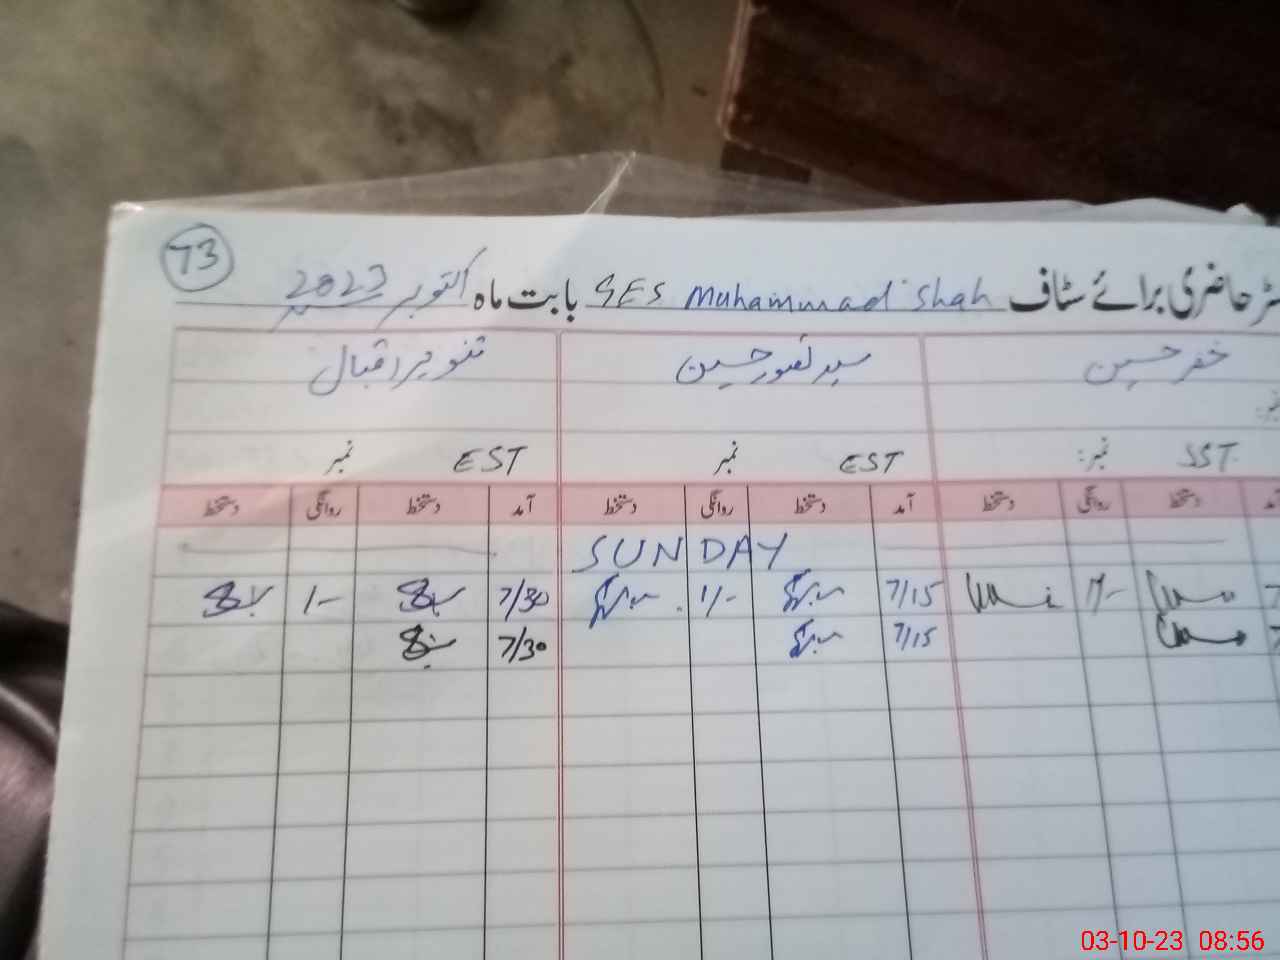 73
ٹر حاضری برائے سٹاف GES Muhammad Shah بابت ماہ اکتوبر 2023
خضر حسین سید تصور حسین تنویر اقبال
نمبر:
SST نمبر: EST نمبر EST نمبر
آمد دستخط روانگی دستخط آمد دستخط روانگی دستخط آمد دستخط روانگی دستخط
SUNDAY
1/- 7/15 1/- 7/30 1/-
7/15 7/30
03-10-23 08:56